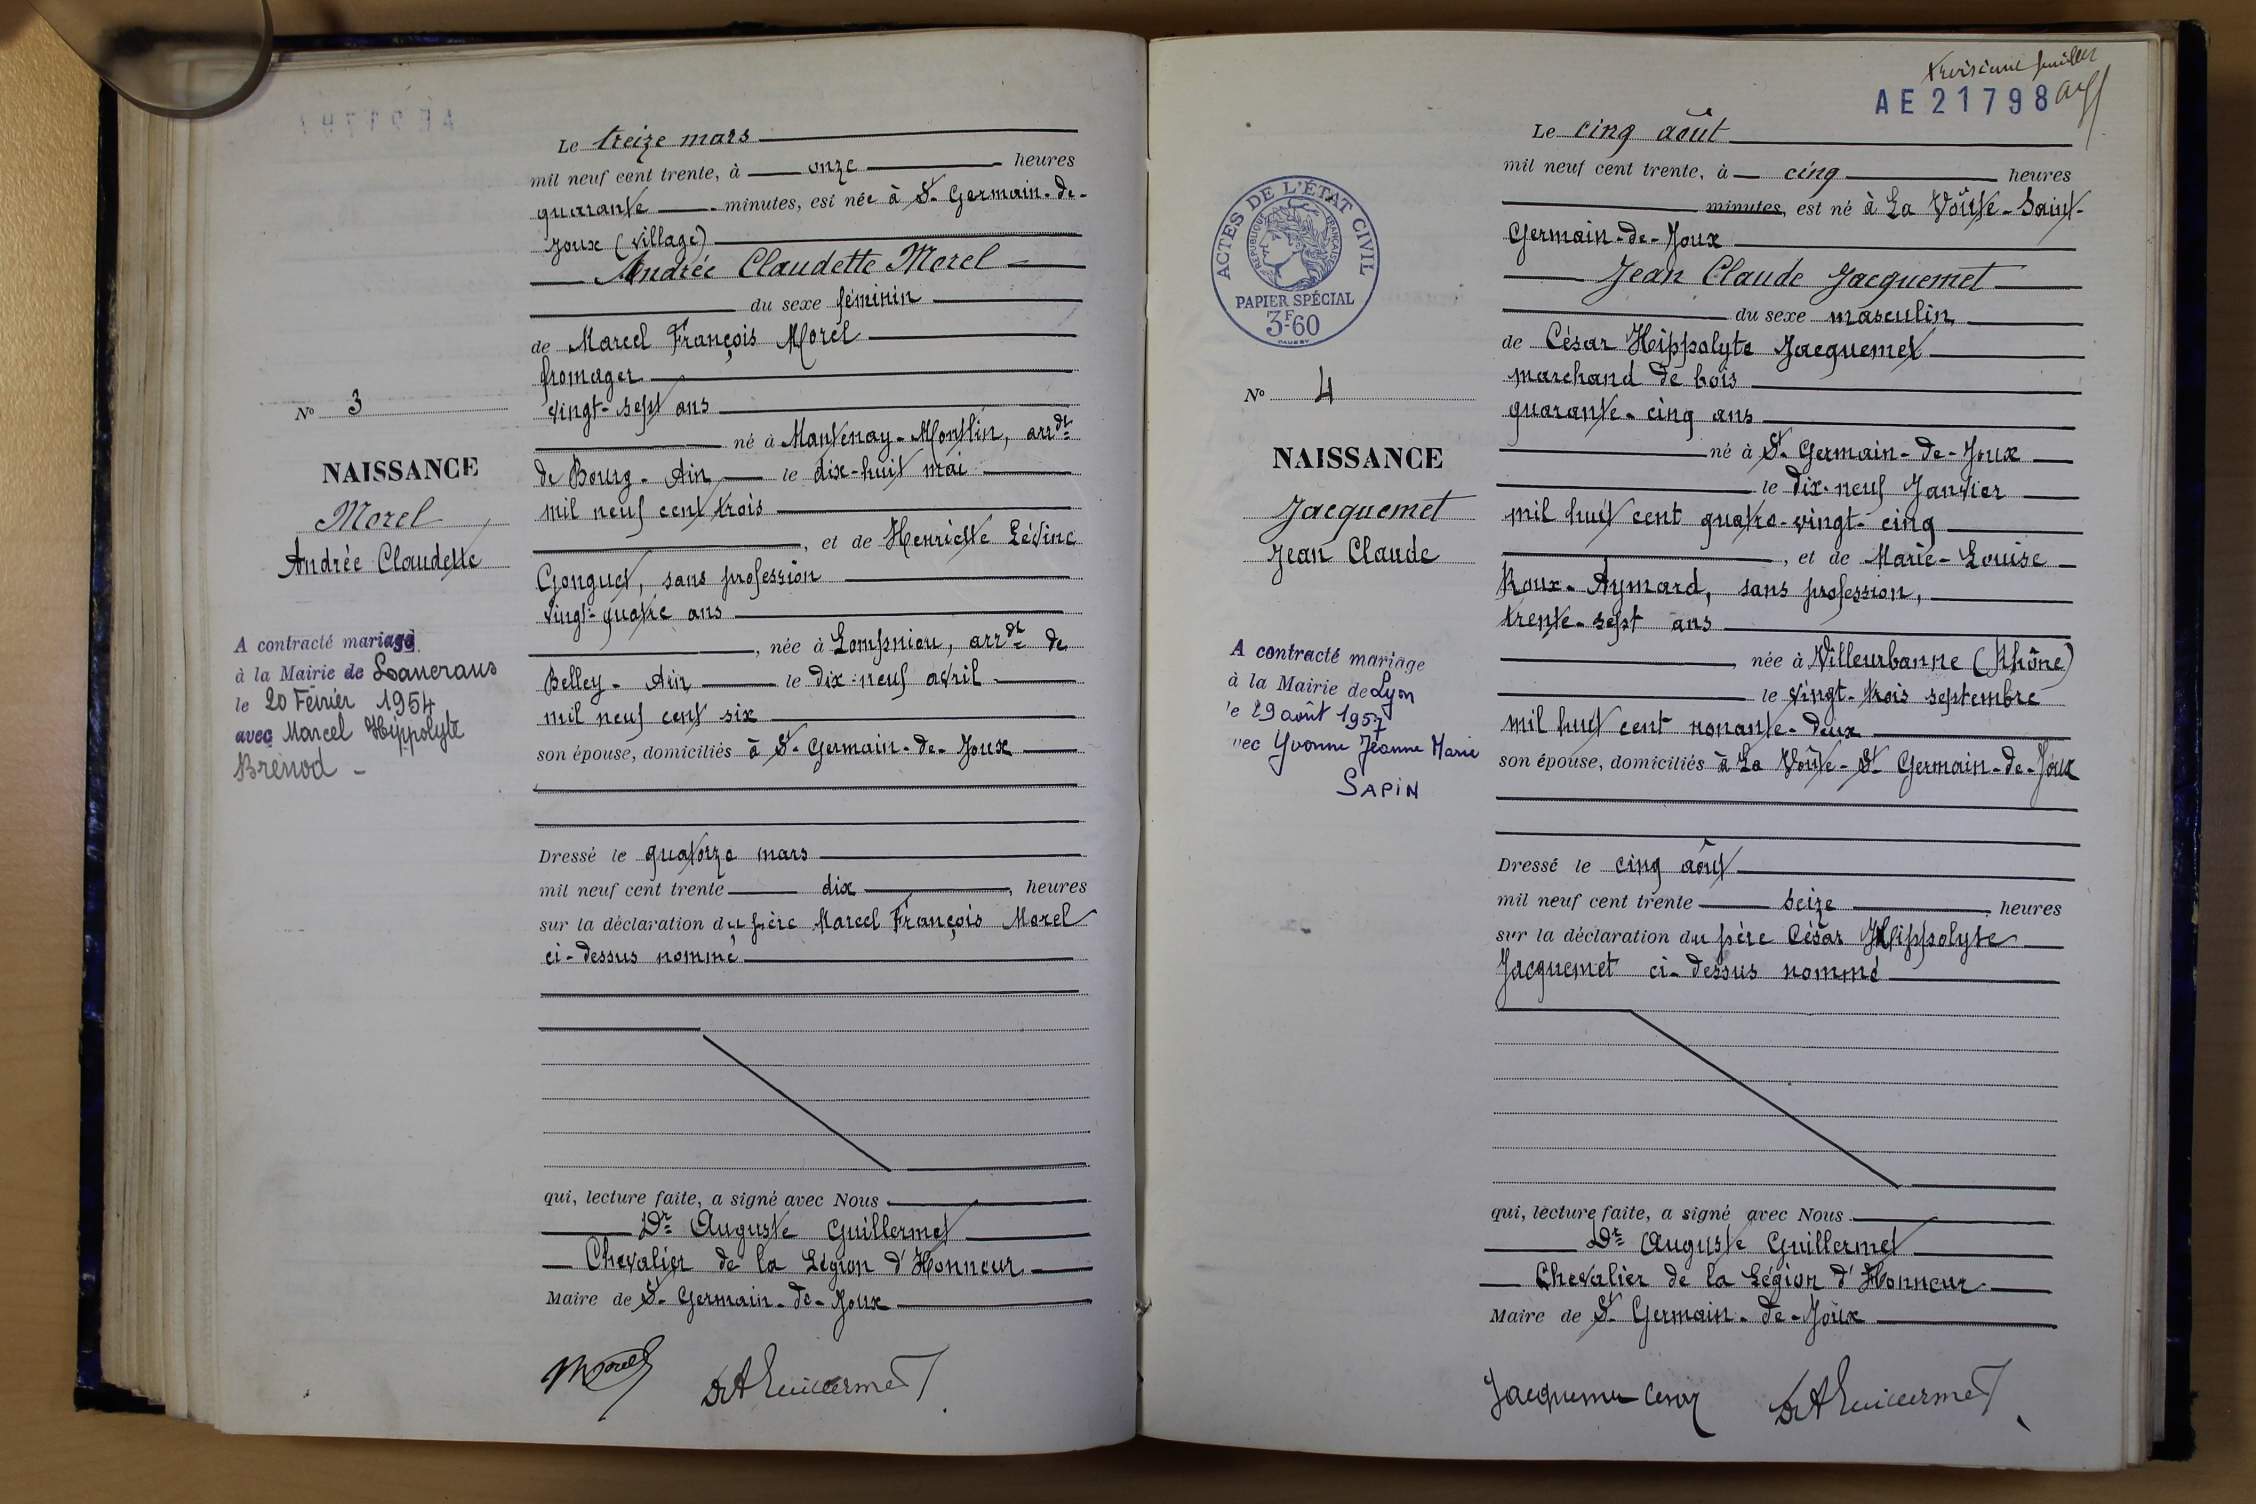 Le treize mars
mil neuf cent trente, à onze heures
quarante minutes, est née à St Germain-de-
Joux (village)
Andrée Claudette Morel
du sexe féminin
de Marcel François Morel
fromager
vingt-sept ans
né à Mantenay-Montlin, arrdt
de Bourg-Ain le dix-huit mai
mil neuf cent trois
, et de Henriette Lévine
Gonguet, sans profession
vingt-quatre ans
, née à Lompnieu, arrdt de
Belley-Ain le dix-neuf avril
mil neuf cent six
son épouse, domiciliés à St Germain-de-Joux
Dressé le quatorze mars
mil neuf cent trente dix, heures
sur la déclaration du père Marcel François Morel
ci-dessus nommé
qui, lecture faite, a signé avec Nous
Dr Auguste Guillermet
Chevalier de la Légion d'Honneur
Maire de St Germain-de-Joux
Morel
Dr A Guillermet
No 3
NAISSANCE
Morel
Andrée Claudette
A contracté mariage
à la Mairie de Lancrans
le 20 Février 1954
avec Marcel Hippolyte
Brenod
troisième feuillet
AE21798
Le cinq août
mil neuf cent trente, à cinq heures
minutes, est né à La Voûte-Saint-
Germain-de-Joux
Jean Claude Jacquemet
du sexe masculin
de César Hippolyte Jacquemet
marchand de bois
quarante-cinq ans
né à St Germain-de-Joux
le dix-neuf Janvier
mil huit cent quatre-vingt-cinq
, et de Marie-Louise
Roux-Aymard, sans profession,
trente-sept ans
née à Villeurbanne (Rhône)
le vingt-trois septembre
mil huit cent nonante-deux
son épouse, domiciliés à La Voûte-St Germain-de-Joux
Dressé le cinq août
mil neuf cent trente seize heures
sur la déclaration du père César Hippolyte
Jacquemet ci-dessus nommé
qui, lecture faite, a signé avec Nous
Dr Auguste Guillermet
Chevalier de la Légion d'Honneur
Maire de St Germain-de-Joux
Jacquemet Cesar
Dr A Guillermet
ACTES DE L'ÉTAT CIVIL
RÉPUBLIQUE FRANÇAISE
PAPIER SPÉCIAL
3F60
No 4
NAISSANCE
Jacquemet
Jean Claude
A contracté mariage
à la Mairie de Lyon
le 29 août 1957
vec Yvonne Jeanne Marie
SAPIN